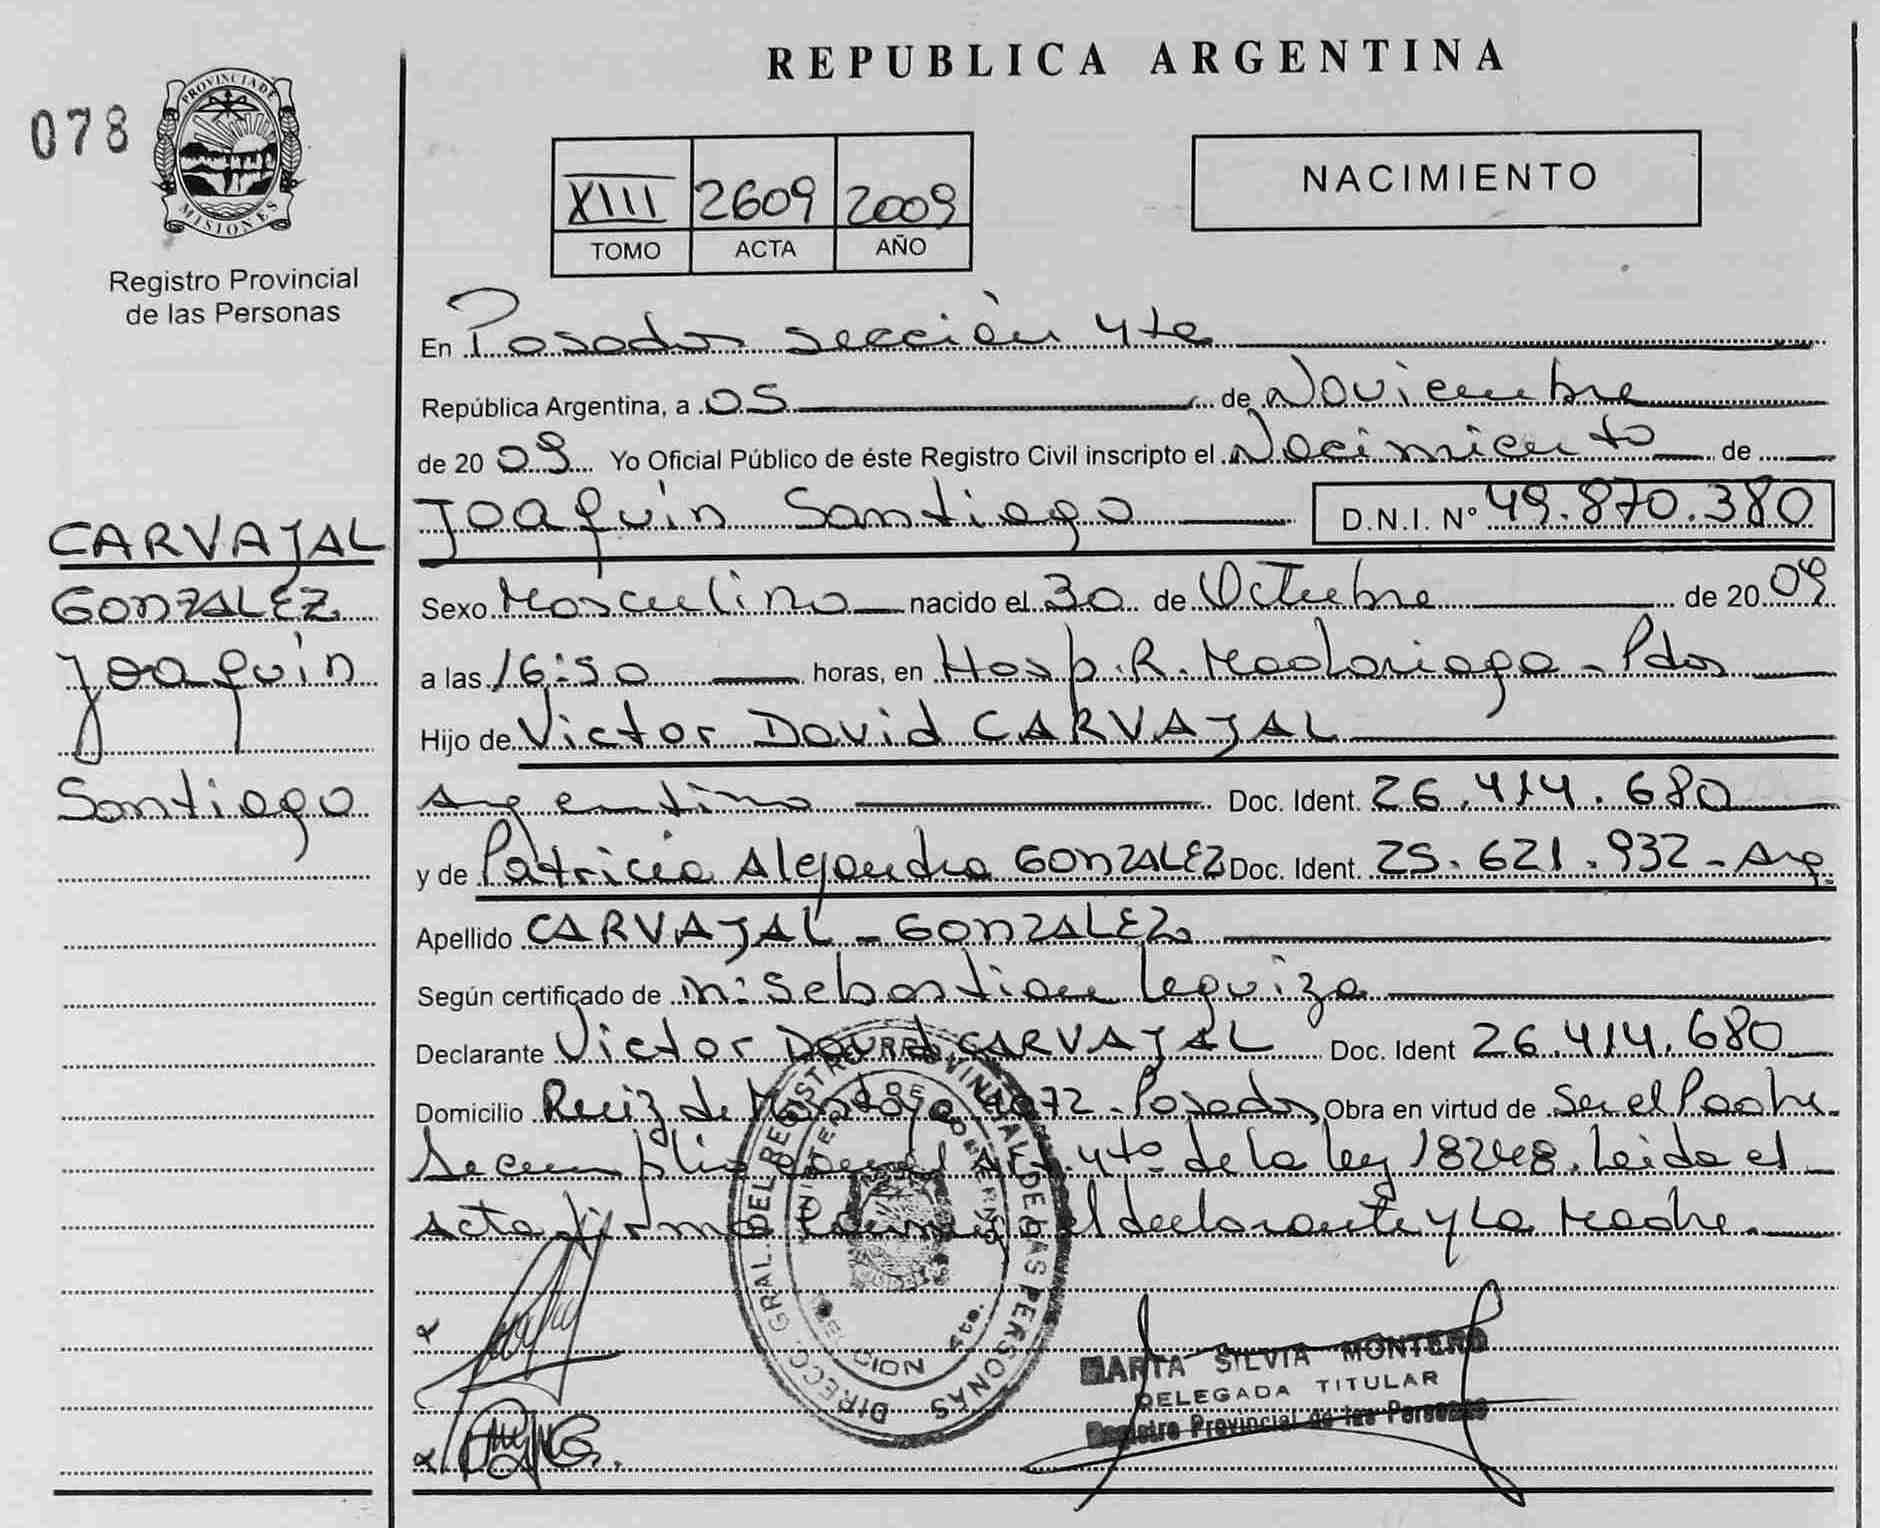 REPUBLICA ARGENTINA
078
PROVINCIA DE
MISIONES
Registro Provincial
de las Personas
XIII 2609 2009
TOMO ACTA AÑO
NACIMIENTO
En Posadas sección 4ta
República Argentina, a 05 de Noviembre
de 2009 Yo Oficial Público de éste Registro Civil inscripto el Nacimiento de
Joaquin Santiago D.N.I. N° 49.870.380
CARVAJAL
GONZALEZ
Joaquin
Santiago
Sexo Masculino nacido el 30 de Octubre de 2009
a las 16:50 horas, en Hosp. R. Madariaga - Pdas
Hijo de Victor David CARVAJAL
Argentino Doc. Ident. 26.414.680
y de Patricia Alejandra GONZALEZ Doc. Ident. 25.621.932 - Arg.
Apellido CARVAJAL - GONZALEZ
Según certificado de Sebastian Leguiza
Declarante Victor David CARVAJAL Doc. Ident 26.414.680
Domicilio Ruiz de Montoya - Posadas, Obra en virtud de Ser el Padre.
Se cumplio con el Art. 4to de la ley 18248. Leida el
acta firma conmigo el declarante y La Madre.
DIRECC. GRAL. DEL REGISTRO PROVINCIAL DE LAS PERSONAS
MARTA SILVIA MONTERO
DELEGADA TITULAR
Registro Provincial de las Personas